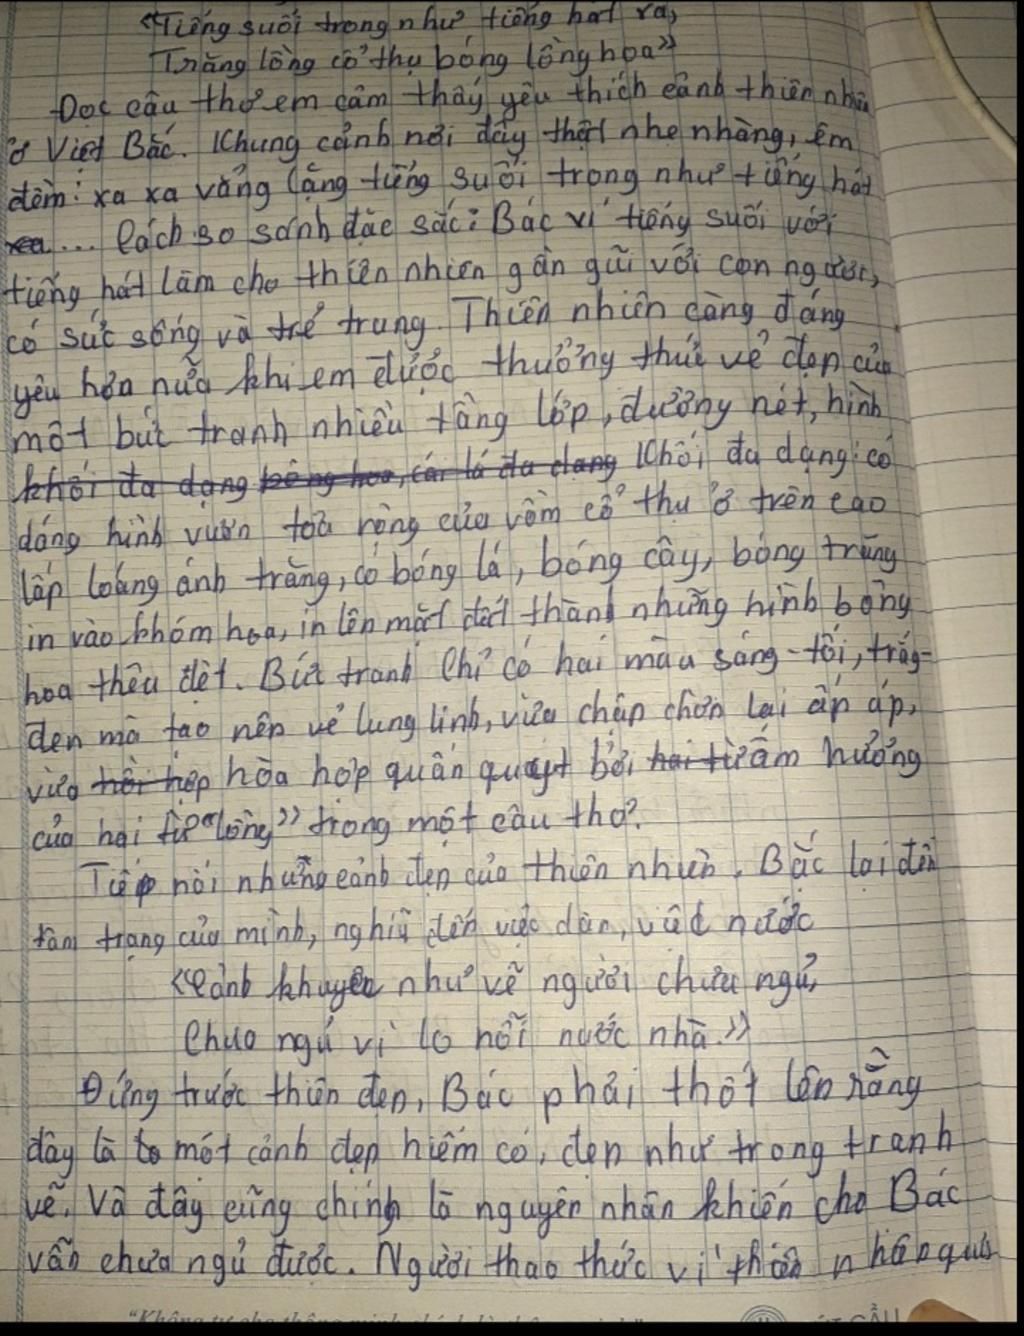 "Tiếng suối trong như tiếng hát xa,
Trăng lồng cổ thụ bóng lồng hoa"
Đọc câu thơ em cảm thấy yêu thích cảnh thiên nhiên
ở Việt Bắc. Khung cảnh nơi đây thật nhẹ nhàng, êm
đềm: xa xa văng lặng tiếng suối trong như tiếng hát
xa... Cách so sánh đặc sắc: Bác ví tiếng suối với
tiếng hát làm cho thiên nhiên gần gũi với con người,
có sức sống và trẻ trung. Thiên nhiên càng đáng
yêu hơn nữa khi em được thưởng thức vẻ đẹp của
một bức tranh nhiều tầng lớp, đường nét, hình
khối đa dạng bông hoa, cái lá đa dạng khối đa dạng: có
dáng hình vươn toả rộng của vòm cổ thụ ở trên cao
lấp loáng ánh trăng, có bóng lá, bóng cây, bóng trăng
in vào khóm hoa, in lên mặt đất thành những hình bông
hoa thêu dệt. Bức tranh chỉ có hai màu sáng-tối, trắng-
đen mà tạo nên vẻ lung linh, vừa chập chờn lại ấm áp,
vừa hòa hợp quấn quýt bởi hai từ âm hưởng
của hai từ "lồng" trong một câu thơ.
Tiếp nối những cảnh đẹp của thiên nhiên, Bác lại đến
tâm trạng của mình, nghĩ đến việc dân, việc nước
"Cảnh khuya như vẽ người chưa ngủ,
Chưa ngủ vì lo nỗi nước nhà."
Đứng trước thiên đẹp, Bác phải thốt lên rằng
đây là một cảnh đẹp hiếm có, đẹp như trong tranh
vẽ. Và đây cũng chính là nguyên nhân khiến cho Bác
vẫn chưa ngủ được. Người thao thức vì thiên nhên quá